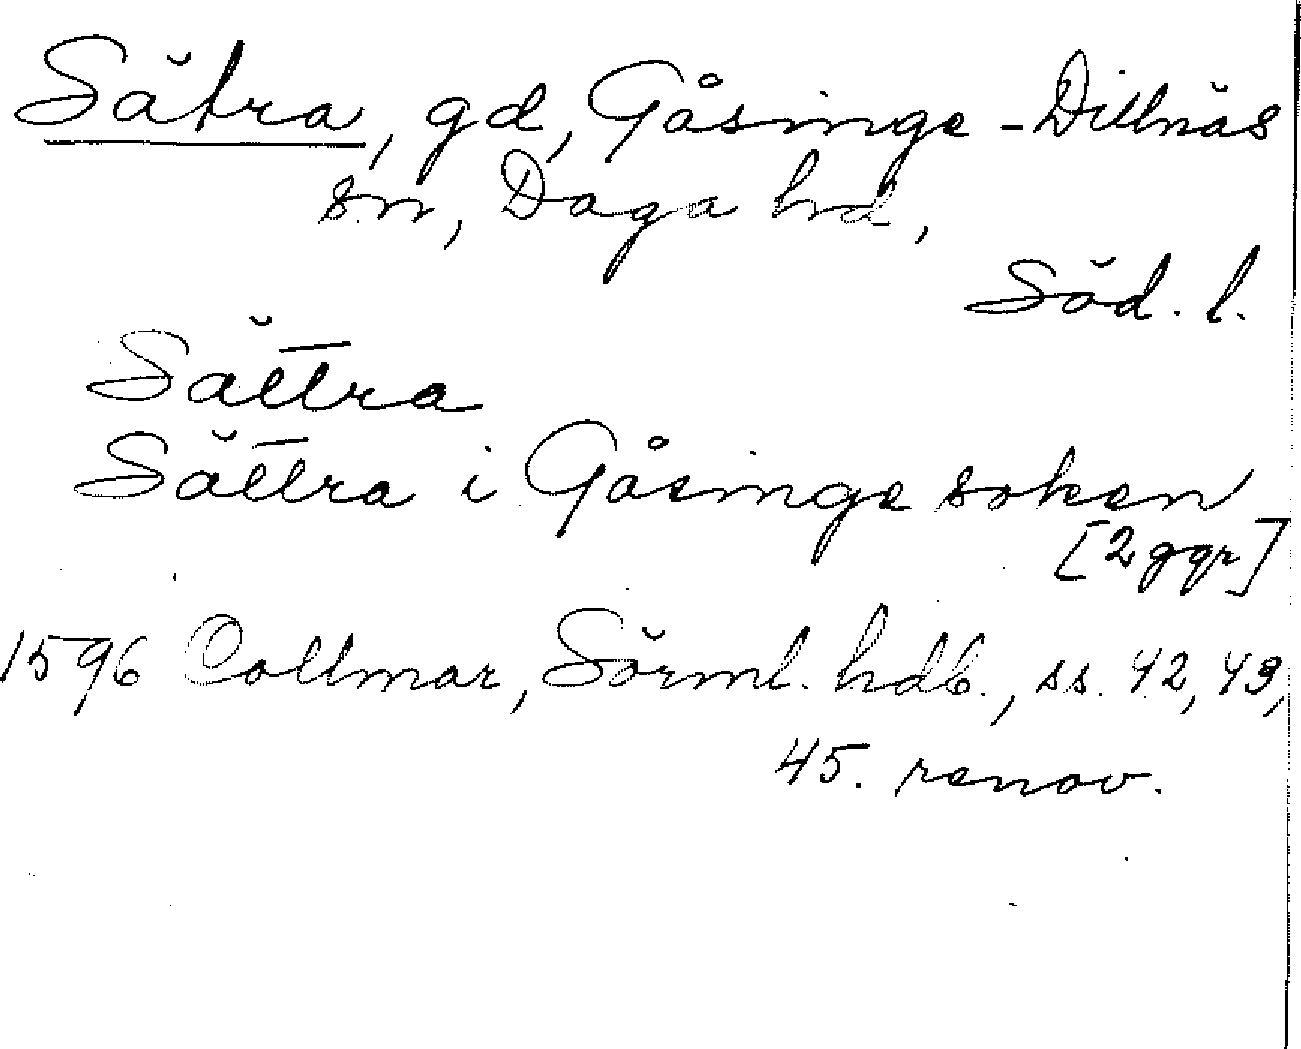 Sätra, gd, Gåsinge-Dillnäs
sn, Daga hd,
Söd. l.
Sättra
Sättra i Gåsinge soken
[2 ggr]
1596 Collmar, Sörml. hdb., ss. 42, 43,
45. renov.